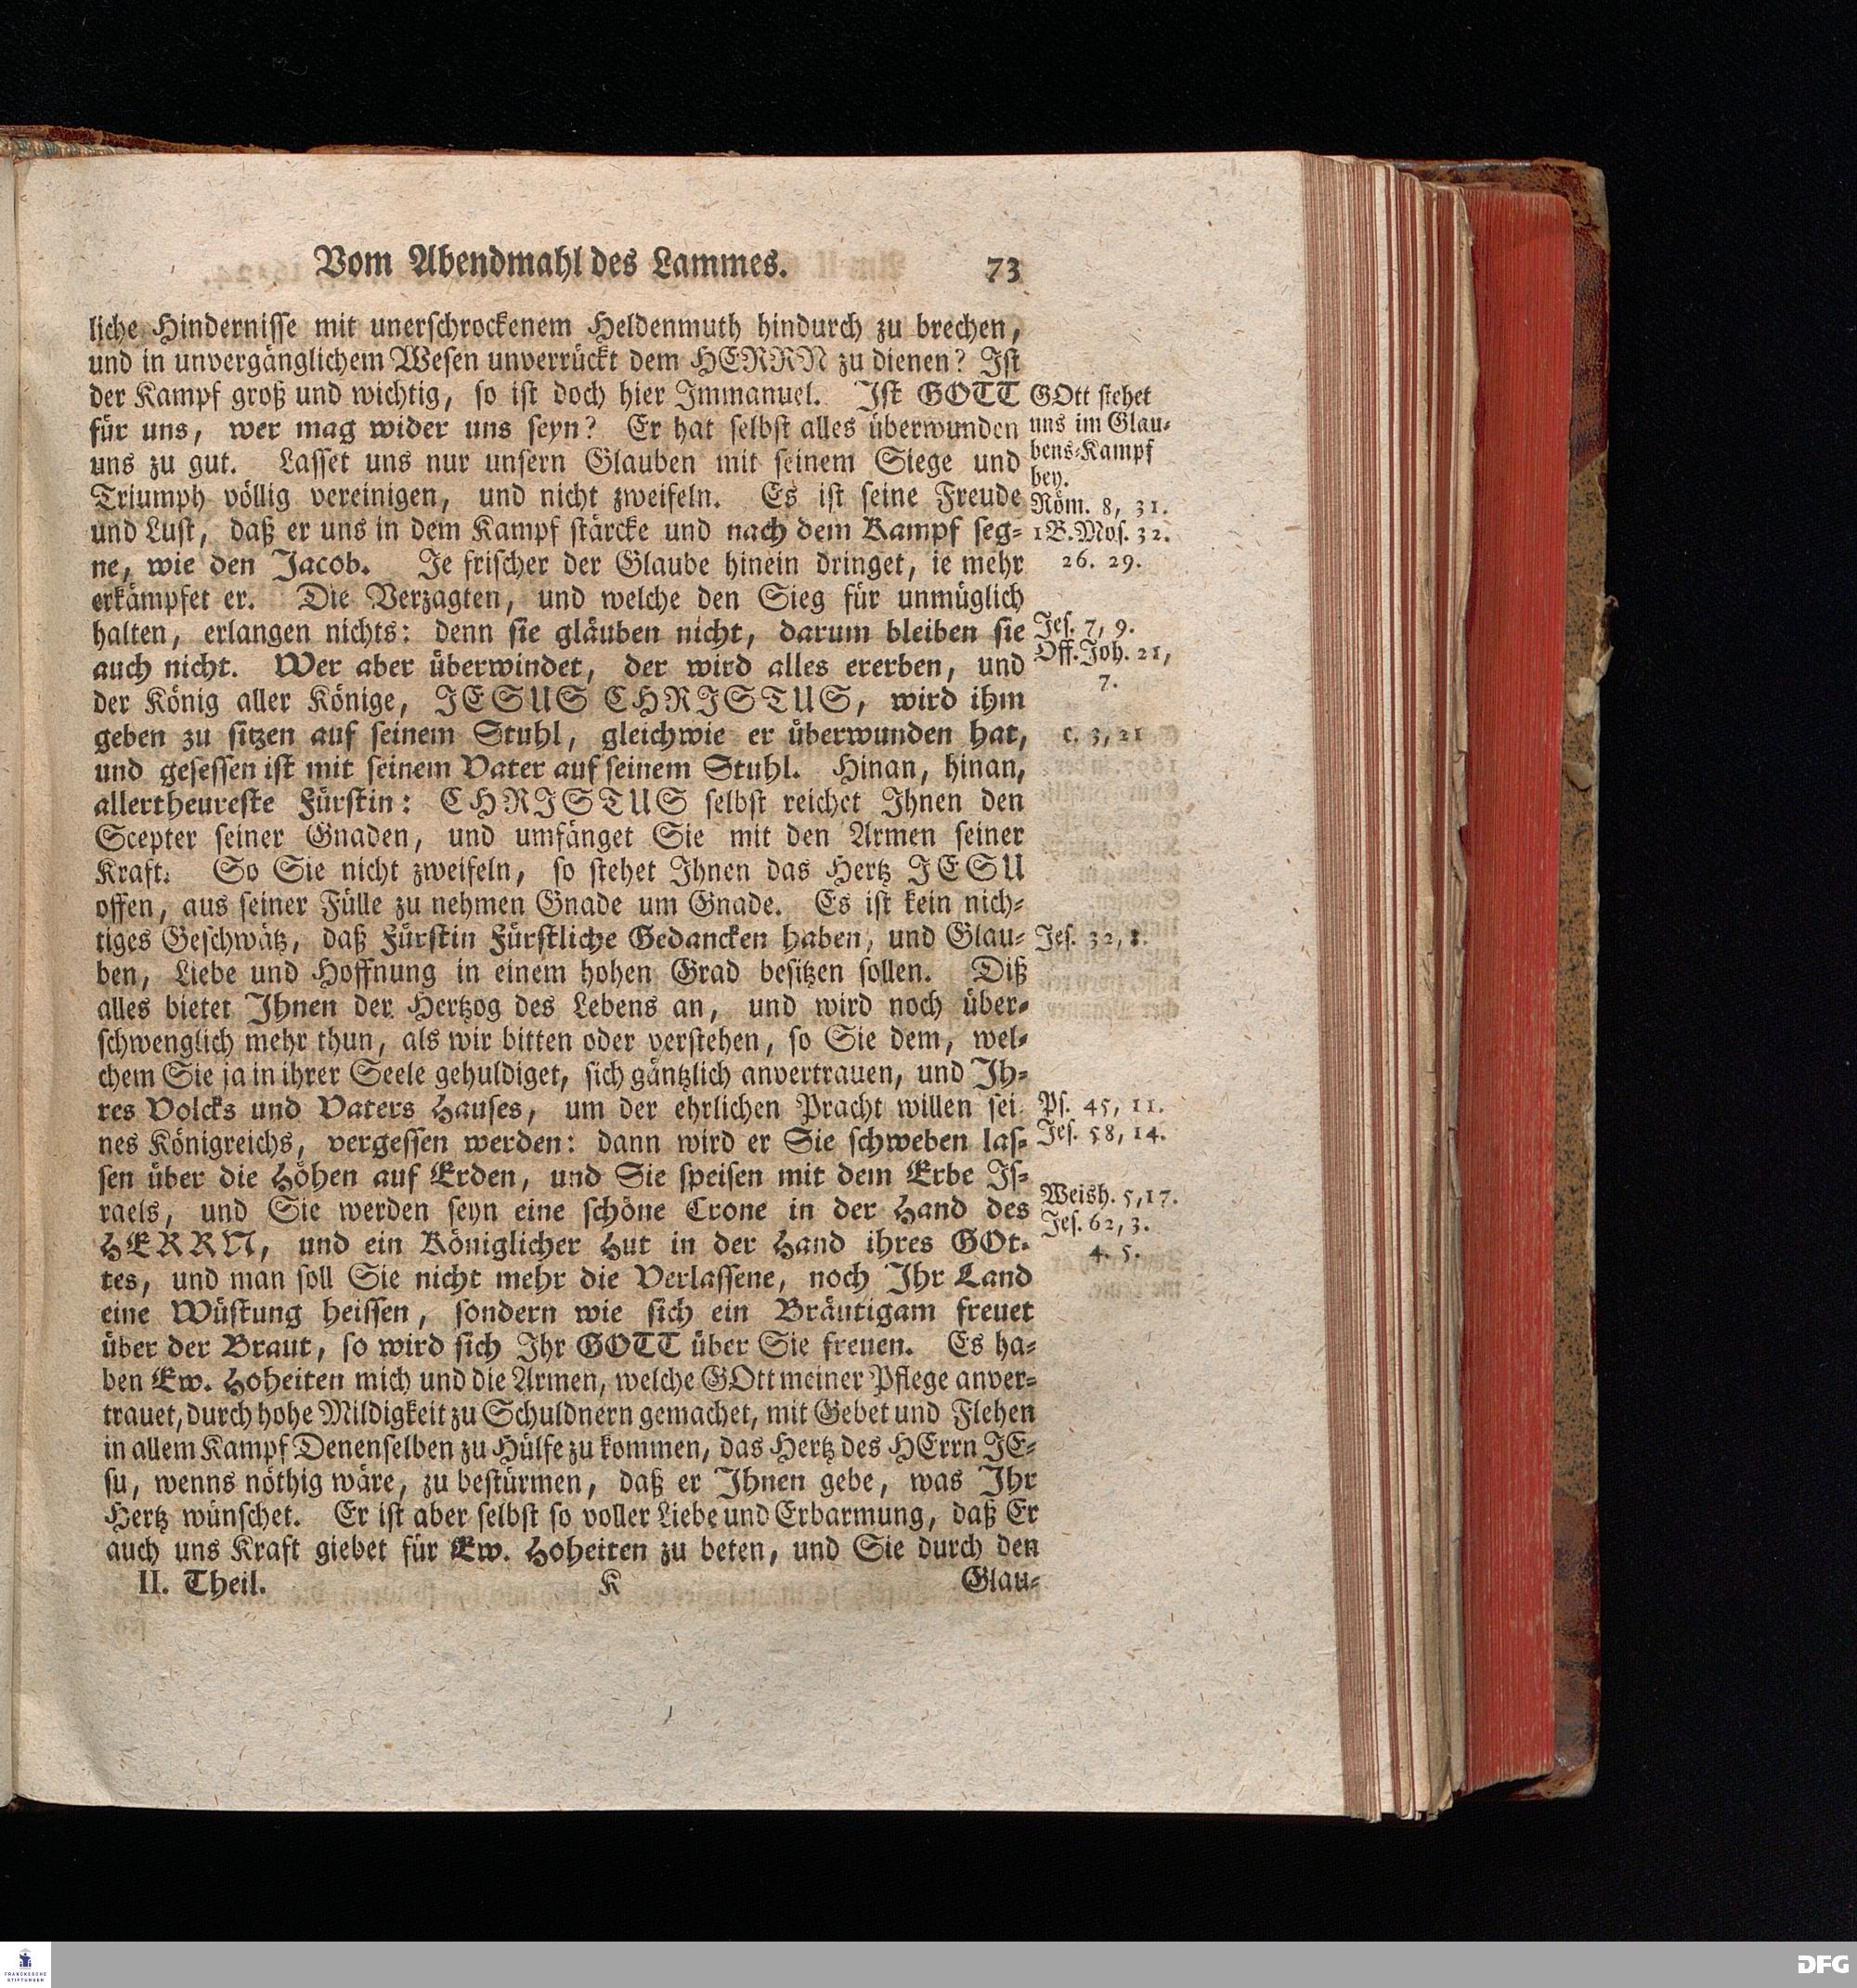 Vom Abendmahl des Lammes. 73
liche Hindernisse mit unerschrockenem Heldenmuth hindurch zu brechen,
und in unvergänglichem Wesen unverrückt dem HERRN zu dienen? Ist
der Kampf groß und wichtig, so ist doch hier Immanuel. Ist GOTT
für uns, wer mag wider uns seyn? Er hat selbst alles überwunden
uns zu gut. Lasset uns nur unsern Glauben mit seinem Siege und
Triumph völlig vereinigen, und nicht zweifeln. Es ist seine Freude
und Lust, daß er uns in dem Kampf stärcke und nach dem Kampf seg-
ne, wie den Jacob. Je frischer der Glaube hinein dringet, ie mehr
erkämpfet er. Die Verzagten, und welche den Sieg für unmüglich
halten, erlangen nichts: denn sie gläuben nicht, darum bleiben sie
auch nicht. Wer aber überwindet, der wird alles ererben, und
der König aller Könige, JESUS CHRISTUS, wird ihm
geben zu sitzen auf seinem Stuhl, gleichwie er überwunden hat,
und gesessen ist mit seinem Vater auf seinem Stuhl. Hinan, hinan,
allertheureste Fürstin: CHRISTUS selbst reichet Ihnen den
Scepter seiner Gnaden, und umfänget Sie mit den Armen seiner
Kraft. So Sie nicht zweifeln, so stehet Ihnen das Hertz JESU
offen, aus seiner Fülle zu nehmen Gnade um Gnade. Es ist kein nich-
tiges Geschwätz, daß Fürstin Fürstliche Gedancken haben, und Glau-
ben, Liebe und Hoffnung in einem hohen Grad besitzen sollen. Diß
alles bietet Ihnen der Hertzog des Lebens an, und wird noch über-
schwenglich mehr thun, als wir bitten oder verstehen, so Sie dem, wel-
chem Sie ja in ihrer Seele gehuldiget, sich gäntzlich anvertrauen, und Ih-
res Volcks und Vaters Hauses, um der ehrlichen Pracht willen sei
nes Königreichs, vergessen werden: dann wird er Sie schweben las-
sen über die Höhen auf Erden, und Sie speisen mit dem Erbe Is-
raels, und Sie werden seyn eine schöne Crone in der Hand des
HERRN, und ein Königlicher Hut in der Hand ihres GOt-
tes, und man soll Sie nicht mehr die Verlassene, noch Ihr Land
eine Wüstung heissen, sondern wie sich ein Bräutigam freuet
über der Braut, so wird sich Ihr GOTT über Sie freuen. Es ha-
ben Ew. Hoheiten mich und die Armen, welche GOtt meiner Pflege anver-
trauet, durch hohe Mildigkeit zu Schuldnern gemachet, mit Gebet und Flehen
in allem Kampf Denenselben zu Hülfe zu kommen, das Hertz des HErrn JE-
su, wenns nöthig wäre, zu bestürmen, daß er Ihnen gebe, was Ihr
Hertz wünschet. Er ist aber selbst so voller Liebe und Erbarmung, daß Er
auch uns Kraft giebet für Ew. Hoheiten zu beten, und Sie durch den
II. Theil. K Glau-
GOtt stehet
uns im Glau-
bens-Kampf
bey.
Röm. 8, 31.
1 B. Mos. 32.
26. 29.
Jes. 7, 9.
Off. Joh. 21,
7.
c. 3, 21
Jes. 32, 8.
Ps. 45, 11.
Jes. 58, 14.
Weish. 5, 17.
Jes. 62, 3.
4. 5.
FRANCKESCHE
STIFTUNGEN
DFG